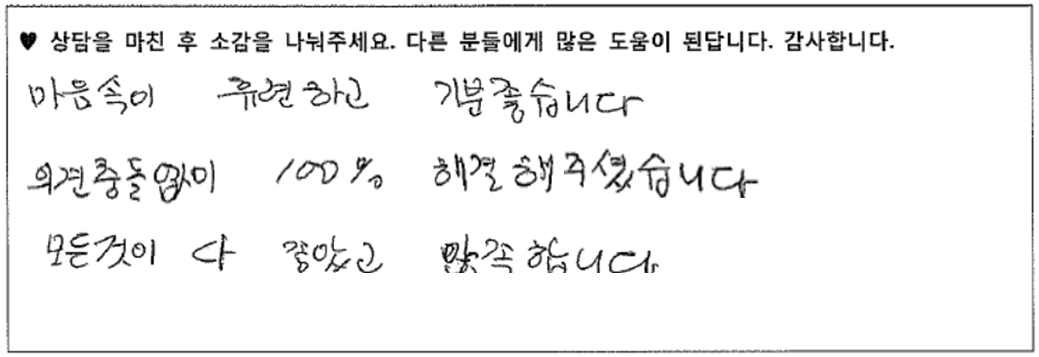 ♥ 상담을 마친 후 소감을 나눠주세요. 다른 분들에게 많은 도움이 된답니다. 감사합니다.
마음속이 후련하고 기분좋습니다
의견충돌없이 100% 해결해주셨습니다
모든것이 다 좋았고 만족합니다